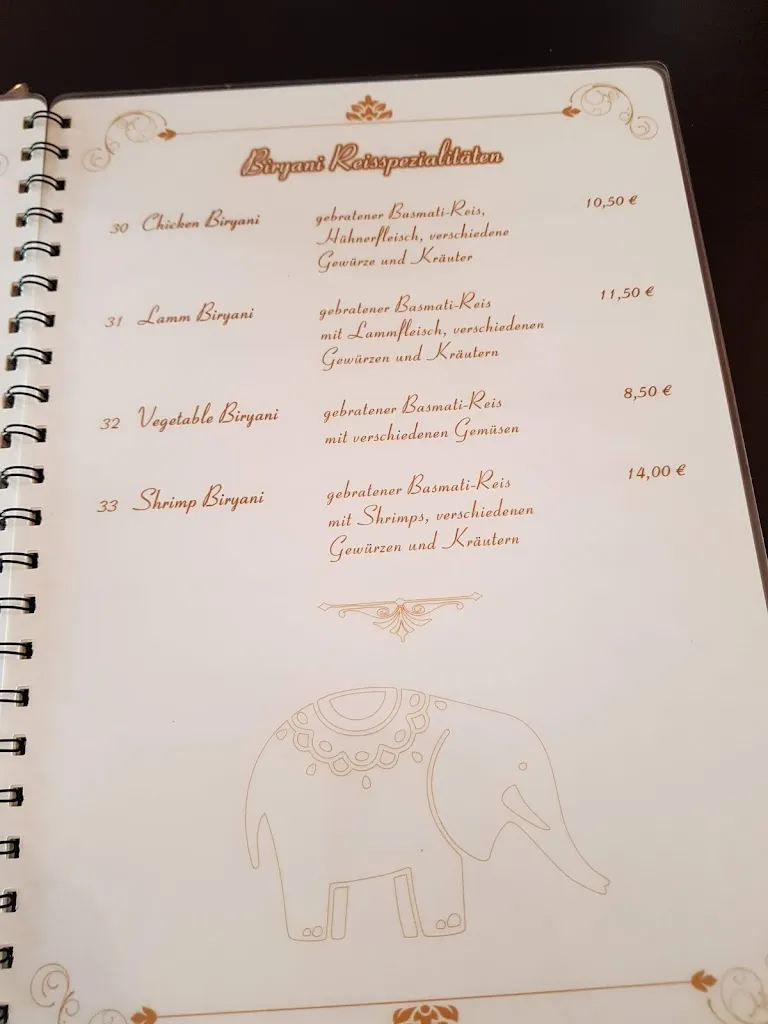 Biryani Reisspezialitäten
30 Chicken Biryani gebratener Basmati-Reis, 10,50 €
Hühnerfleisch, verschiedene
Gewürze und Kräuter
31 Lamm Biryani gebratener Basmati-Reis 11,50 €
mit Lammfleisch, verschiedenen
Gewürzen und Kräutern
32 Vegetable Biryani gebratener Basmati-Reis 8,50 €
mit verschiedenen Gemüsen
33 Shrimp Biryani gebratener Basmati-Reis 14,00 €
mit Shrimps, verschiedenen
Gewürzen und Kräutern